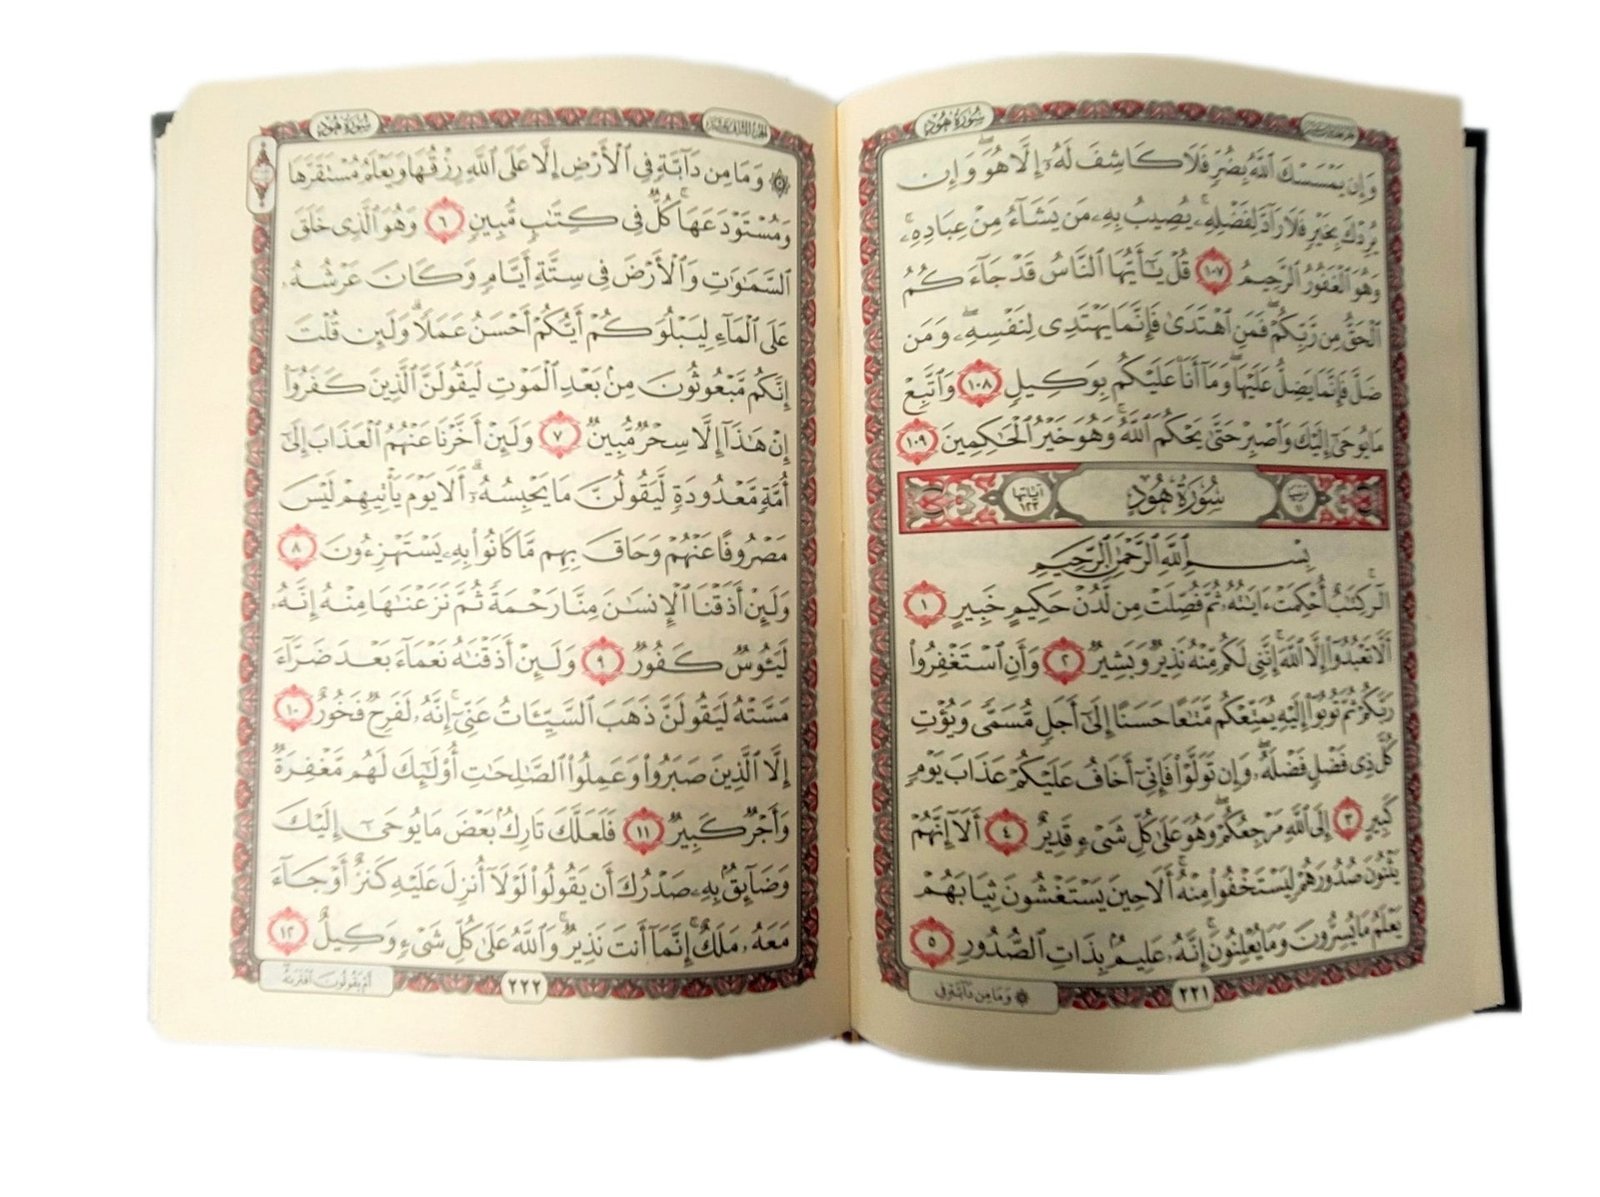 سُورَةُ هُودٍ
وَإِن يَمْسَسْكَ ٱللَّهُ بِضُرٍّ فَلَا كَاشِفَ لَهُۥٓ إِلَّا هُوَۖ وَإِن
يُرِدْكَ بِخَيْرٍ فَلَا رَآدَّ لِفَضْلِهِۦۚ يُصِيبُ بِهِۦ مَن يَشَآءُ مِنْ عِبَادِهِۦۚ
وَهُوَ ٱلْغَفُورُ ٱلرَّحِيمُ ١٠٧ قُلْ يَـٰٓأَيُّهَا ٱلنَّاسُ قَدْ جَآءَكُمُ
ٱلْحَقُّ مِن رَّبِّكُمْۖ فَمَنِ ٱهْتَدَىٰ فَإِنَّمَا يَهْتَدِى لِنَفْسِهِۦۖ وَمَن
ضَلَّ فَإِنَّمَا يَضِلُّ عَلَيْهَاۖ وَمَآ أَنَا۠ عَلَيْكُم بِوَكِيلٍ ١٠٨ وَٱتَّبِعْ
مَا يُوحَىٰٓ إِلَيْكَ وَٱصْبِرْ حَتَّىٰ يَحْكُمَ ٱللَّهُۚ وَهُوَ خَيْرُ ٱلْحَـٰكِمِينَ ١٠٩
سُورَةُ هُودٍ آياتها ١٢٣
بِسْمِ ٱللَّهِ ٱلرَّحْمَـٰنِ ٱلرَّحِيمِ
الٓرۚ كِتَـٰبٌ أُحْكِمَتْ ءَايَـٰتُهُۥ ثُمَّ فُصِّلَتْ مِن لَّدُنْ حَكِيمٍ خَبِيرٍ ١
أَلَّا تَعْبُدُوٓا۟ إِلَّا ٱللَّهَۚ إِنَّنِى لَكُم مِّنْهُ نَذِيرٌ وَبَشِيرٌ ٢ وَأَنِ ٱسْتَغْفِرُوا۟
رَبَّكُمْ ثُمَّ تُوبُوٓا۟ إِلَيْهِ يُمَتِّعْكُم مَّتَـٰعًا حَسَنًا إِلَىٰٓ أَجَلٍ مُّسَمًّى وَيُؤْتِ
كُلَّ ذِى فَضْلٍ فَضْلَهُۥۖ وَإِن تَوَلَّوْا۟ فَإِنِّىٓ أَخَافُ عَلَيْكُمْ عَذَابَ يَوْمٍ
كَبِيرٍ ٣ إِلَى ٱللَّهِ مَرْجِعُكُمْۖ وَهُوَ عَلَىٰ كُلِّ شَىْءٍ قَدِيرٌ ٤ أَلَآ إِنَّهُمْ
يَثْنُونَ صُدُورَهُمْ لِيَسْتَخْفُوا۟ مِنْهُۚ أَلَا حِينَ يَسْتَغْشُونَ ثِيَابَهُمْ
يَعْلَمُ مَا يُسِرُّونَ وَمَا يُعْلِنُونَۚ إِنَّهُۥ عَلِيمٌۢ بِذَاتِ ٱلصُّدُورِ ٥
٢٢١ ۞ وَمَا مِن دَآبَّةٍ فِى
سُورَةُ هُودٍ
۞ وَمَا مِن دَآبَّةٍ فِى ٱلْأَرْضِ إِلَّا عَلَى ٱللَّهِ رِزْقُهَا وَيَعْلَمُ مُسْتَقَرَّهَا
وَمُسْتَوْدَعَهَاۚ كُلٌّ فِى كِتَـٰبٍ مُّبِينٍ ٦ وَهُوَ ٱلَّذِى خَلَقَ
ٱلسَّمَـٰوَٰتِ وَٱلْأَرْضَ فِى سِتَّةِ أَيَّامٍ وَكَانَ عَرْشُهُۥ
عَلَى ٱلْمَآءِ لِيَبْلُوَكُمْ أَيُّكُمْ أَحْسَنُ عَمَلًاۗ وَلَئِن قُلْتَ
إِنَّكُم مَّبْعُوثُونَ مِنۢ بَعْدِ ٱلْمَوْتِ لَيَقُولَنَّ ٱلَّذِينَ كَفَرُوٓا۟
إِنْ هَـٰذَآ إِلَّا سِحْرٌ مُّبِينٌ ٧ وَلَئِنْ أَخَّرْنَا عَنْهُمُ ٱلْعَذَابَ إِلَىٰٓ
أُمَّةٍ مَّعْدُودَةٍ لَّيَقُولُنَّ مَا يَحْبِسُهُۥٓۗ أَلَا يَوْمَ يَأْتِيهِمْ لَيْسَ
مَصْرُوفًا عَنْهُمْ وَحَاقَ بِهِم مَّا كَانُوا۟ بِهِۦ يَسْتَهْزِءُونَ ٨
وَلَئِنْ أَذَقْنَا ٱلْإِنسَـٰنَ مِنَّا رَحْمَةً ثُمَّ نَزَعْنَـٰهَا مِنْهُ إِنَّهُۥ
لَيَـُٔوسٌ كَفُورٌ ٩ وَلَئِنْ أَذَقْنَـٰهُ نَعْمَآءَ بَعْدَ ضَرَّآءَ
مَسَّتْهُ لَيَقُولَنَّ ذَهَبَ ٱلسَّيِّـَٔاتُ عَنِّىٓۚ إِنَّهُۥ لَفَرِحٌ فَخُورٌ ١٠
إِلَّا ٱلَّذِينَ صَبَرُوا۟ وَعَمِلُوا۟ ٱلصَّـٰلِحَـٰتِ أُو۟لَـٰٓئِكَ لَهُم مَّغْفِرَةٌ
وَأَجْرٌ كَبِيرٌ ١١ فَلَعَلَّكَ تَارِكٌۢ بَعْضَ مَا يُوحَىٰٓ إِلَيْكَ
وَضَآئِقٌۢ بِهِۦ صَدْرُكَ أَن يَقُولُوا۟ لَوْلَآ أُنزِلَ عَلَيْهِ كَنزٌ أَوْ جَآءَ
مَعَهُۥ مَلَكٌۚ إِنَّمَآ أَنتَ نَذِيرٌۚ وَٱللَّهُ عَلَىٰ كُلِّ شَىْءٍ وَكِيلٌ ١٢
٢٢٢ أَمْ يَقُولُونَ ٱفْتَرَىٰهُ